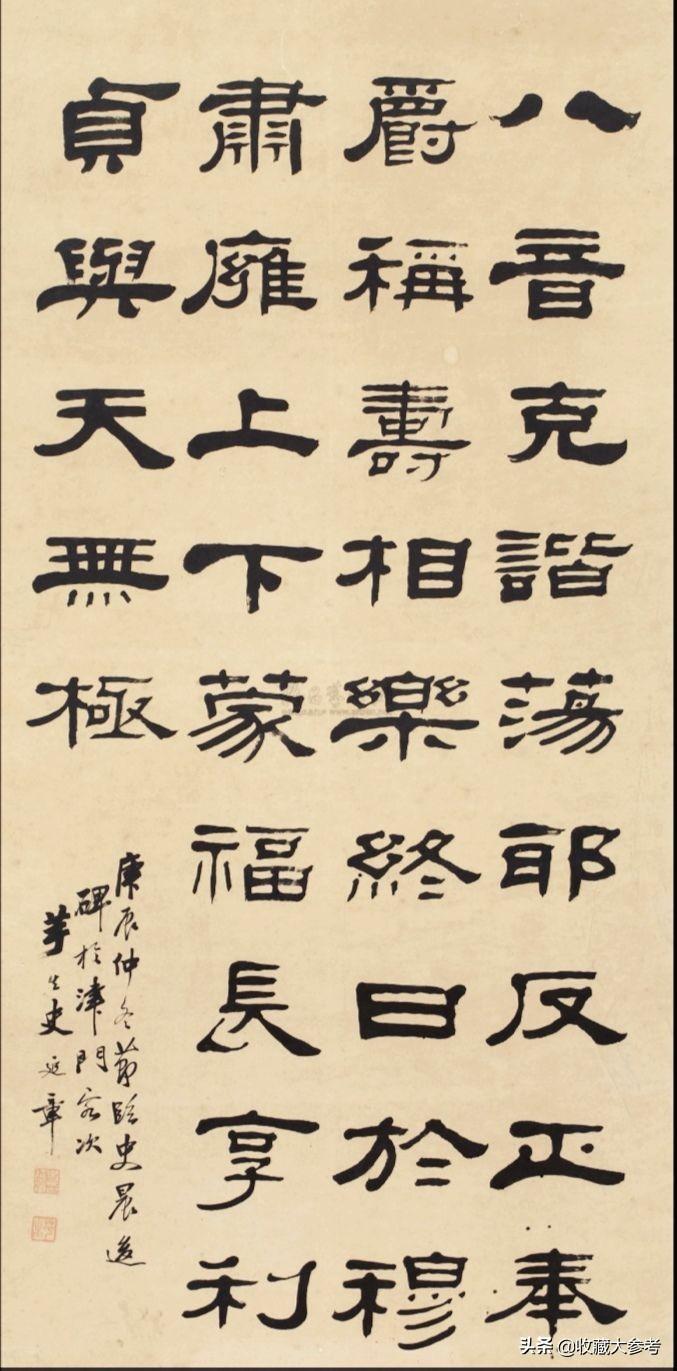 八音克諧蕩耶反正奉
爵稱壽相樂終日於穆
肅雍上下蒙福長享利
貞與天無極
庚辰仲冬節臨史晨後
碑於津門客次
芋生史延章
头条 @收藏大参考